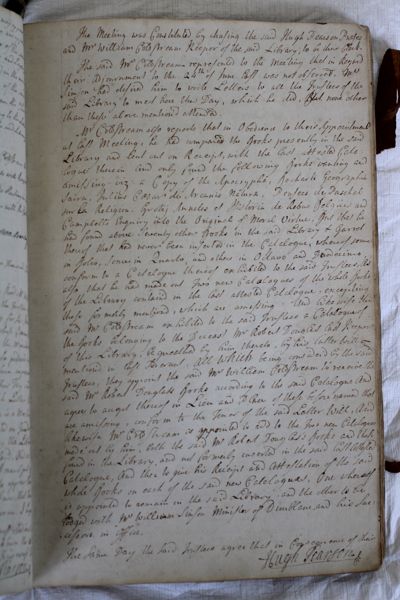 The Meeting was Constituted by chusing the said Hugh Pearson Preses
and Mr William Coldstream Keeper of the said Library, to be their Clerk.
The said Mr Coldstream represented to the Meeting that in regard
their Adjournment to the 24th of June last was not observed. Mr
Simson had desired him to write Letters to all the Trustees of the
said Library to meet here this Day, which he did, But none other
than those above mentioned attended.
Mr Coldstream also reports that in Obedience to their Appointment
at last Meeting, he had compared the Books presently in the said
Library and lent out on Receipt, with the last attested Cata
logue thereof and only found the following Books wanting and
amissing viz. a Copy of the Apocrypha, Bocharti Geographia
Sacra, Julius Caesar de Arcanis Natura,
on Religion, Grotij Annales et Historia de Rebus Belgicis and
Campbells Inquiry into the Original of Moral Virtue, But that he
had found above Seventy other Books in the said Library & Garret
thereof that had never been inserted in the Catalogue, whereof some
in folio, Some in Quarto, and others in Octavo and Duodecimo,
conform to a Catalogue thereof exhibited to the said Trustees, As
also, that he had made out Two new Catalogues of the whole Books
of the Library contained in the last attested Catalogue, excepting
those formerly mentioned, which are amissing. And likewise the
said Mr Coldstream exhibited to the said Trustees a Catalogue of
the Books belonging to the Deceast Mr Robert Douglas last Keeper
of this Library, bequeathed by him thereto, by his Latter Will
mentioned in last Sederunt. All which being considered by the said
Trustees, they appoint the said Mr William Coldstream to receive the
said Mr Robert Douglas's Books according to the said Catalogue And
agree to accept thereof in Lieu and Place of those before named that
are amissing, conform to the Tenor of the said Latter Will, And
likewise Mr Coldstream is appointed to add to the two new Catalogues
made out by him, both the said Mr Robert Douglas's Books and those
found in the Library, and not formerly inserted in the said last attested
Catalogue, And then to give his Receipt and Attestation of the said
whole Books on each of the said new Catalogues, One whereof
is appointed to remain in the said Library and the other to be
lodged with Mr William Simson Minister of Dumblane and his Suc
cessors in Office.
The Same Day the said Trustees agree that in Consequence of their
Hugh Pearson